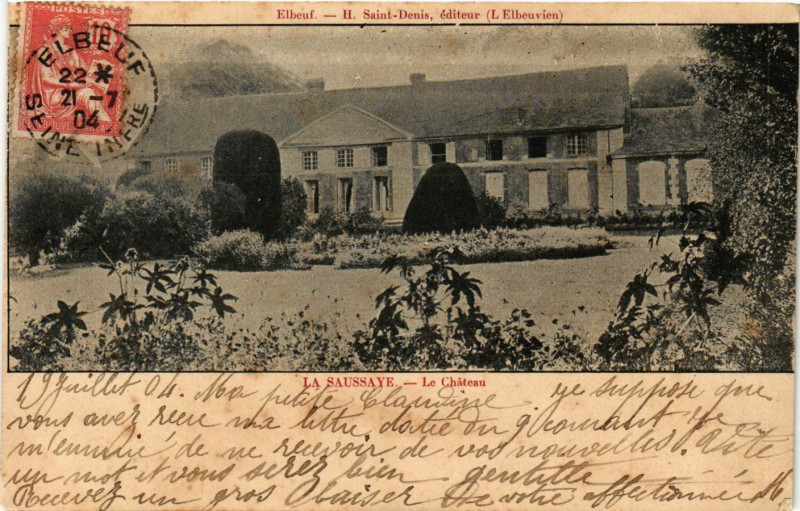 Elbeuf. — H. Saint-Denis, éditeur (L Elbeuvien)
10
ELBEUF
22 *
21 -7
04
SEINE INFRE
LA SAUSSAYE. — Le Château
19 juillet 04. Ma petite Claudine je suppose que
vous avez reçu ma lettre datée du 9 courant je
m'ennuie de ne recevoir de vos nouvelles. Vite
un mot et vous serez bien gentille
Recevez un gros baiser de votre affectionnée M